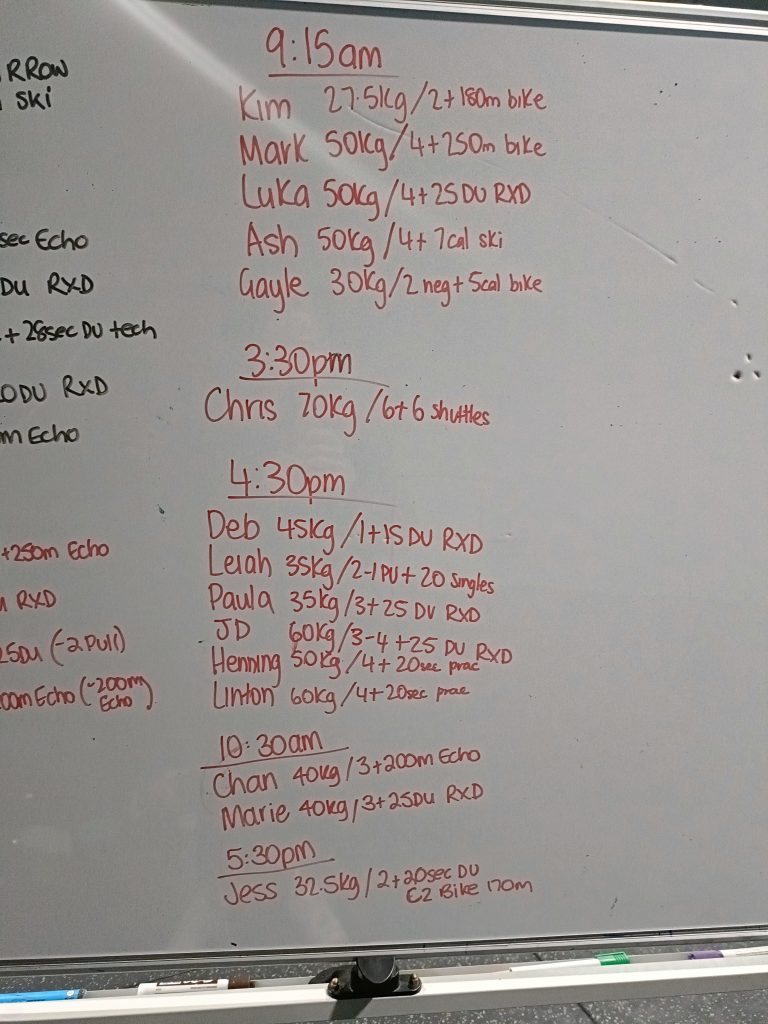 RROW
SKi
sec Echo
DU RXD
+ 28sec DU tech
0DU RXD
m Echo
+250m Echo
RXD
25DU (-2 Pull)
00m Echo (-200m
Echo)
9:15am
Kim 27.5kg/2+180m bike
Mark 50kg/4+250m bike
Luka 50kg/4+25 DU RXD
Ash 50kg/4+7cal ski
Gayle 30kg/2neg+5cal bike
3:30pm
Chris 70kg/6+6 shuttles
4:30pm
Deb 45kg/1+15 DU RXD
Leiah 35kg/2-1PU+20 singles
Paula 35kg/3+25 DU RXD
JD 60kg/3-4+25 DU RXD
Henning 50kg/4+20sec prac
Linton 60kg/4+20sec prac
10:30am
Chan 40kg/3+200m Echo
Marie 40kg/3+25DU RXD
5:30pm
Jess 32.5kg/2+20sec DU
C2 Bike 170m